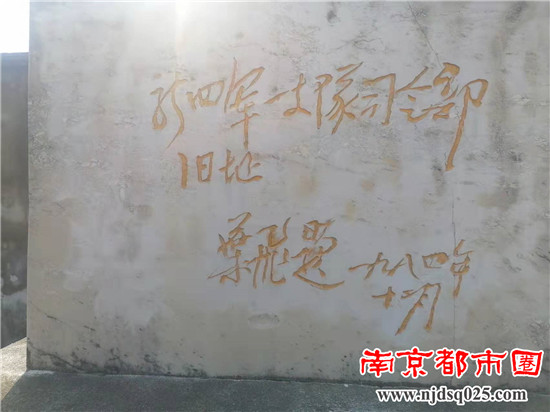 新四军支隊司令部
旧址
葉飛題 一九八四年
十一月
南京都市圈
www.njdsq025.com